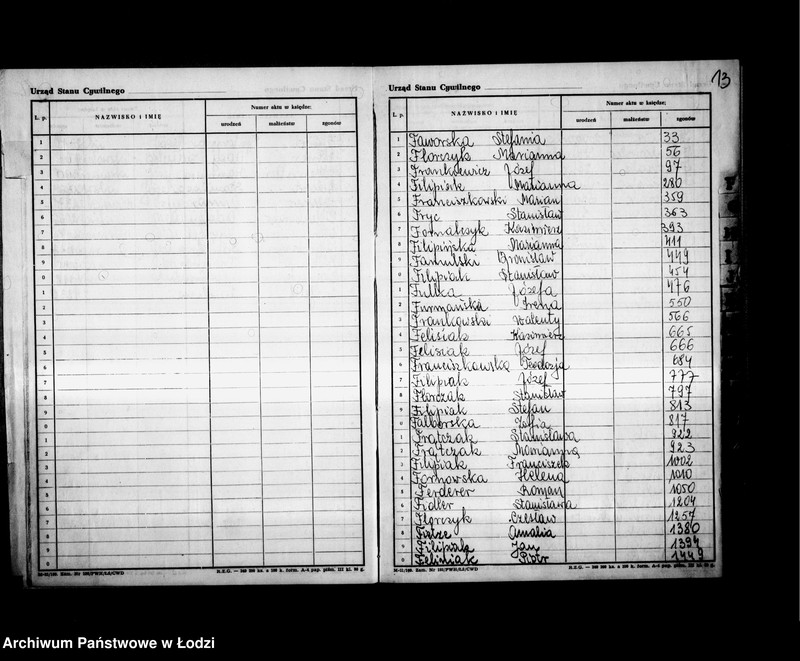 Urząd Stanu Cywilnego
L. p. NAZWISKO i IMIĘ Numer aktu w księdze:
urodzeń małżeństw zgonów
1
2
3
4
5
6
7
8
9
0
1
2
3
4
5
6
7
8
9
0
1
2
3
4
5
6
7
8
9
0
13
Urząd Stanu Cywilnego
L. p. NAZWISKO i IMIĘ Numer aktu w księdze:
urodzeń małżeństw zgonów
1 Faworska Stefania 33
2 Florczyk Marianna 56
3 Frankiewicz Józef 97
4 Filipiak Marianna 280
5 Franciszkowski Marian 359
6 Fryc Stanisław 363
7 Fornalczyk Kazimierz 393
8 Filipińska Marianna 411
9 Famulski Bronisław 449
0 Filipiak Stanisław 454
1 Fulka Józefa 476
2 Furmańska Irena 550
3 Frankowski Walenty 566
4 Felisiak Kazimierz 665
5 Felisiak Józef 666
6 Franciszkowska Teodozja 684
7 Filipiak Józef 777
8 Florczak Stanisław 797
9 Filipiak Stefan 813
0 Falborska Zofia 817
1 Frątczak Stanisława 922
2 Frątczak 923
3 Filipiak Franciszek 1002
4 Fornowska Helena 1010
5 Federer Roman 1050
6 Fidler Stanisława 1204
7 Florczyk Czesław 1257
8 Amalia 1380
9 Jan 1394
0 Feliniak Piotr 1449
Archiwum Państwowe w Łodzi